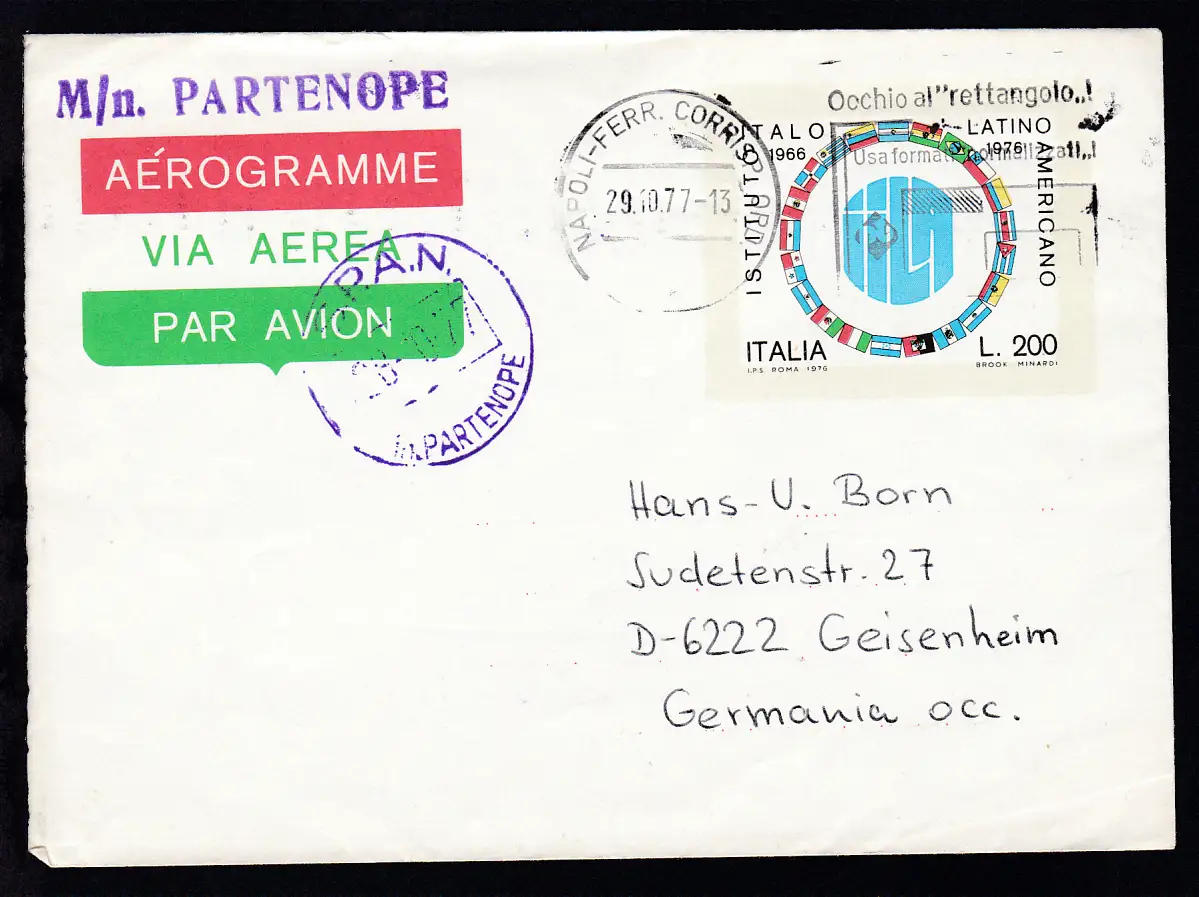 M/n. PARTENOPE
AÉROGRAMME
VIA AEREA
PAR AVION
P.A.N.
PARTENOPE
NAPOLI-FERR. CORRISP. ORD
29.10.77-13
Occhio al "rettangolo„!
Usa formati normalizzati„!
ISTITUTO ITALO
LATINO AMERICANO
1966
1976
IILA
ITALIA
L. 200
I.P.S. ROMA 1976
BROOK MINARDI
Hans-U. Born
Sudetenstr. 27
D-6222 Geisenheim
Germania occ.